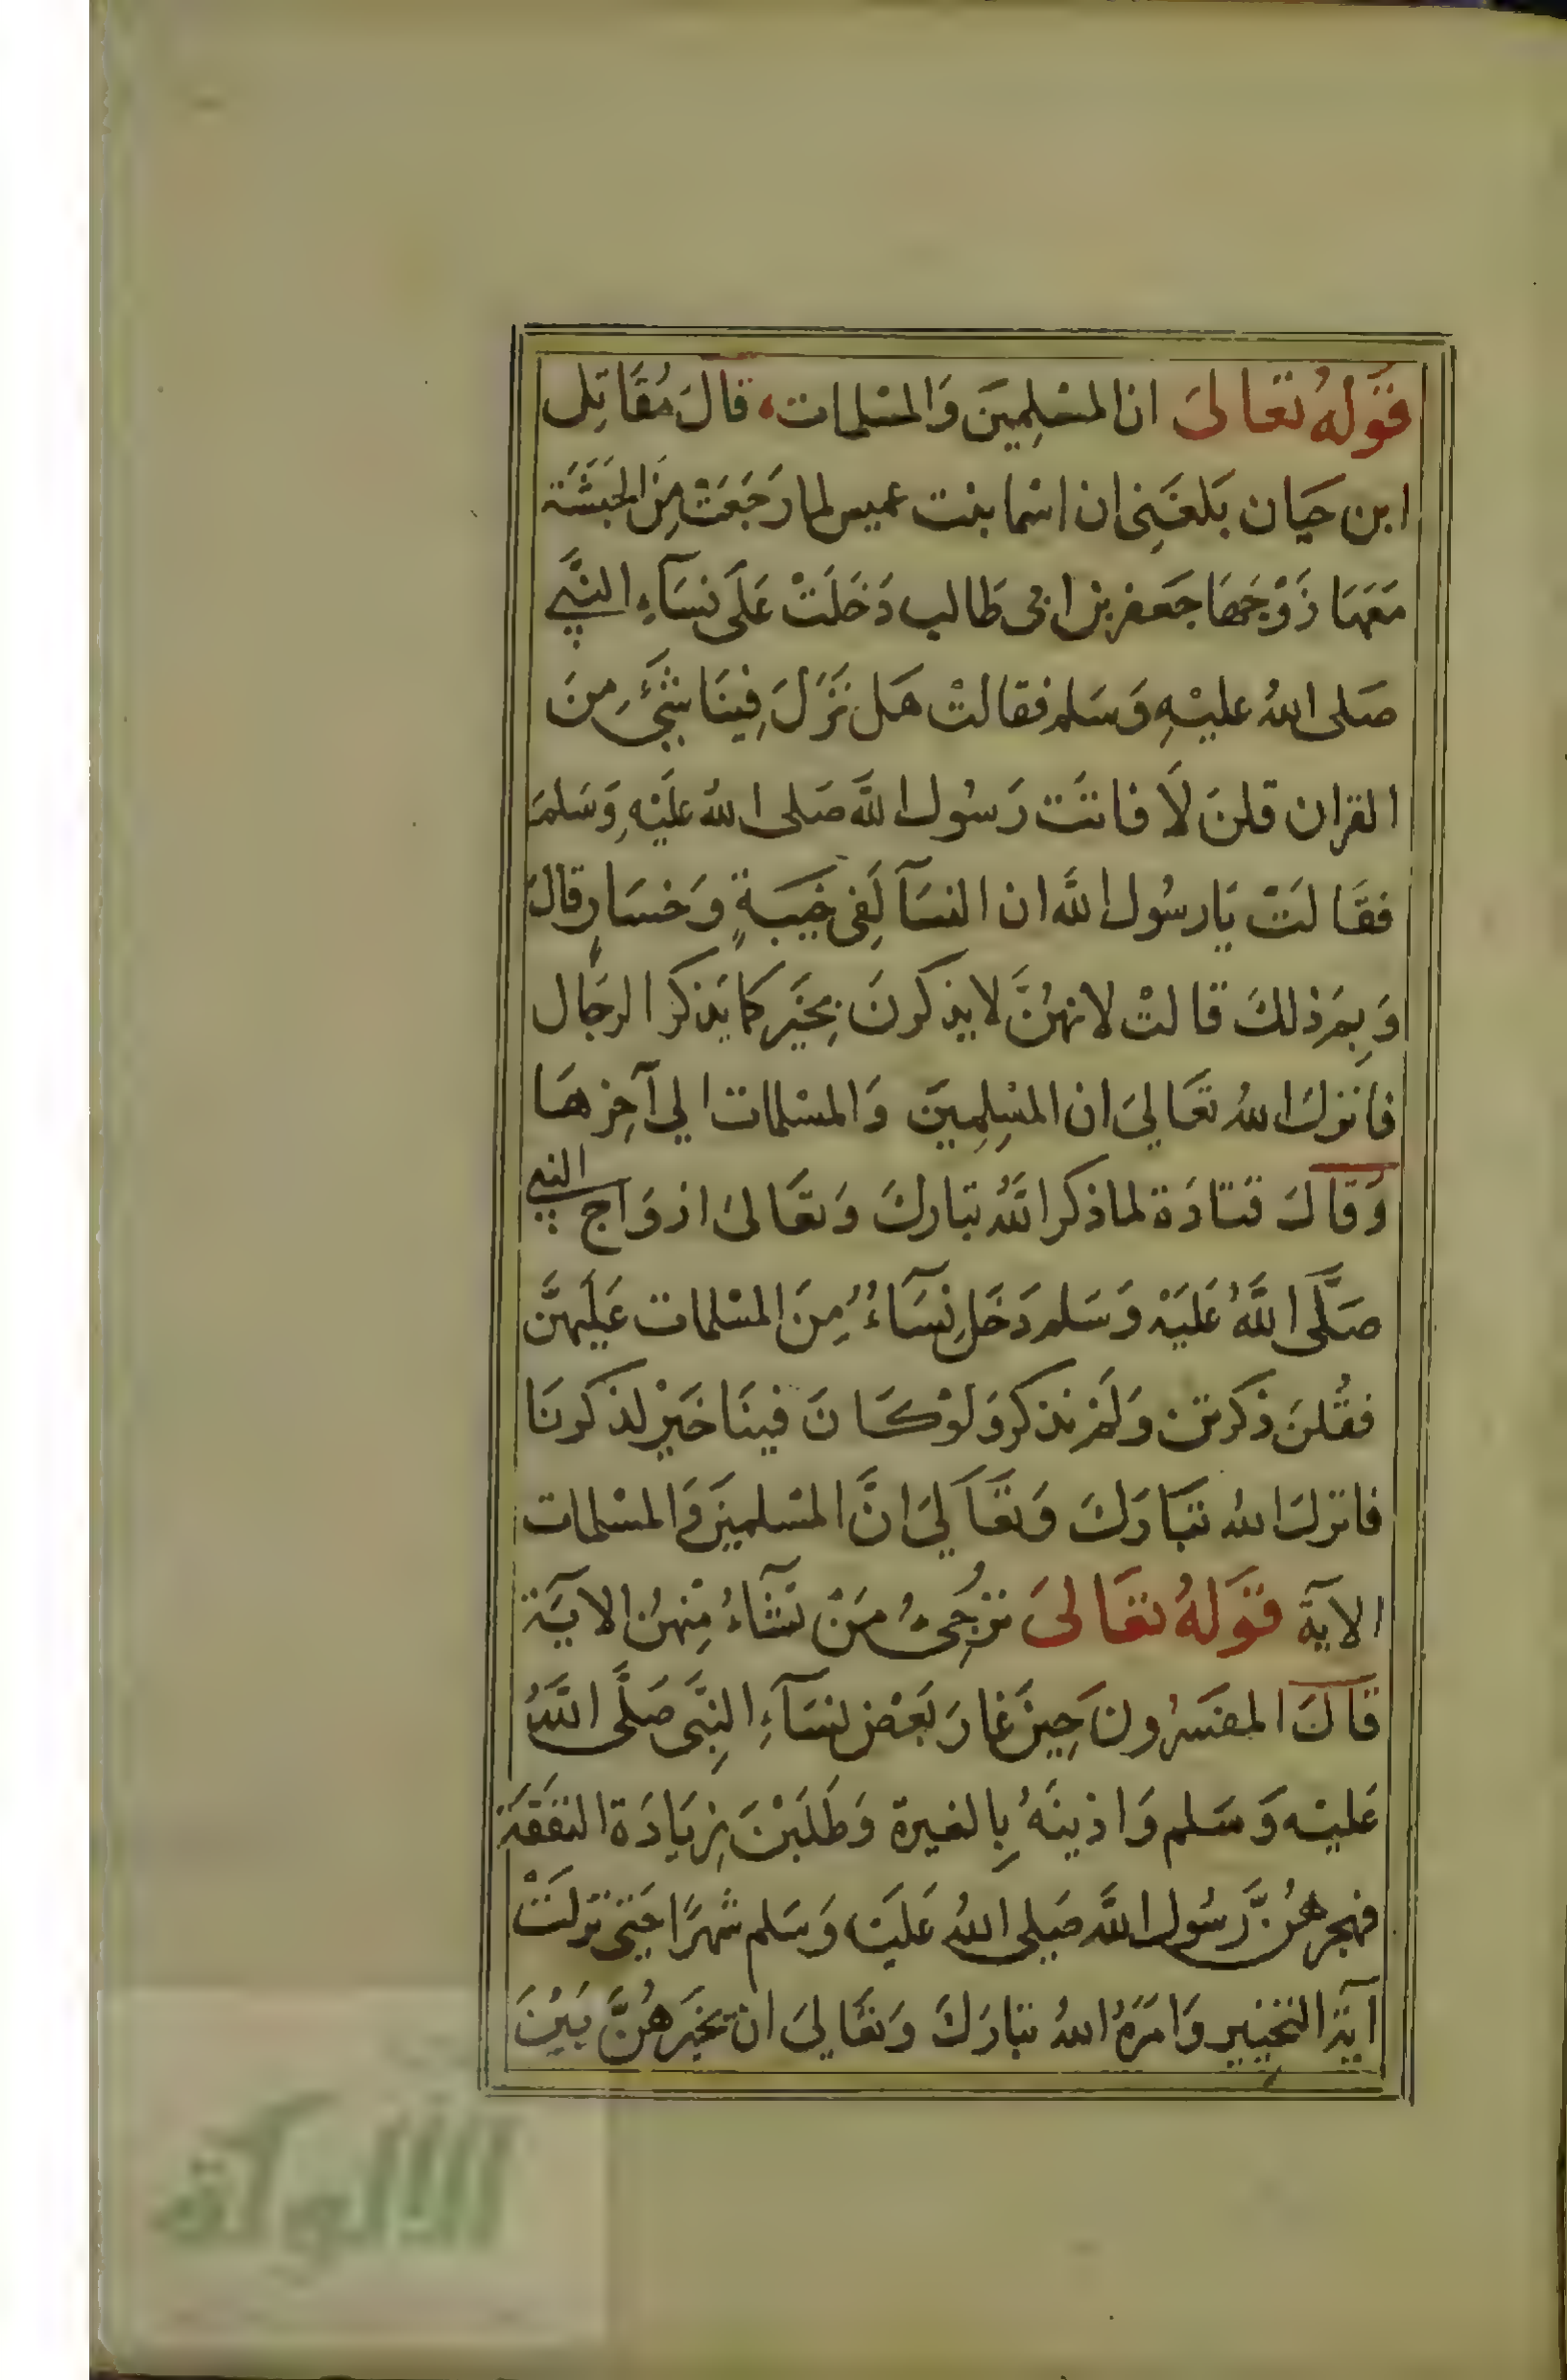 قَوْلهُ تعَالىَ ان المسْلِمِينَ وَالمسْلمات، قالَ مُقَاتِل
ابن حَيان بَلغَنِى ان اسْما بنت عميس لما رَجَعَتْ مِنَ الحَبَشَة
مَعَهَا زَوْجهَا جَعفر بن ابى طَالب دَخَلَتْ عَلَى نسَآءِ النَّبِي
صَلى اللهُ عليْهِ وَسَلم فقالتْ هَل نَزَلَ فِينَا شَيْءٌ مِنَ
القران قلنَ لَا فاتَت رَسُول اللَّه صَلى اللهُ علَيْهِ وَسَلمَ
فقَالَتْ يَا رسُول اللَّه ان النسَآ لَفِى خَيبَةٍ وَخسَارٍ قالَ
وَبِمَ ذلكَ قالتْ لانهُنَّ لا يذكرنَ بِخَيرٍ كما يَذكر الرجَال
فانزلَ اللهُ تعَالىَ ان المسْلِمِينَ وَالمسْلمات الي آخِرهَا
وَقالَ قتادَة لما ذكر اللَّهُ تبَاركَ وَتعَالىَ ازوَاج النبي
صَلَّى اللَّهُ عَلَيْه وَسَلم دَخَل نِسَآءٌ مِنَ المسْلمات عَلَيهنَّ
فقُلنَ ذكرتن وَلَمْ نذكر وَلوْ كَانَ فينَا خَيْر لذكرنَا
فانزلَ اللهُ تبَارَكَ وَتعَالىَ انَّ المسْلمينَ وَالمسْلمات
الآية قَوْلهُ تعَالىَ تُرْجِىُٔ مَنْ تَشَآءُ مِنْهُن الآيَة
قَالَ المفسرُون حِينَ غارَ بَعْض نسَآءِ النبِّى صَلَّى اللَّهُ
عَليْه وَسَلم وَاذينَهُ بِالغيرة وَطَلَبْنَ زِيَادَة النفَقَة
فهجرهُنَّ رَسُول اللَّه صَلى اللهُ عَلَيْه وَسَلم شهرًا حَتى نزلَتْ
آية التخيير وَامَرَهُ اللهُ تبَارَكَ وَتعَالىَ ان يخَيرَهُنَّ بَيْنَ
الألوكة